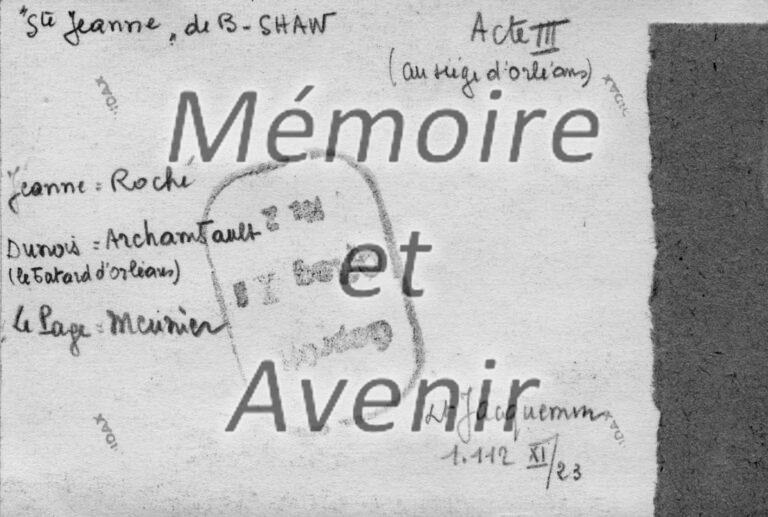 "Ste Jeanne" de B-SHAW
Acte III
(au siège d'orléans)
Mémoire
Jeanne = Roché
Dunois = Archambault
(le batard d'orléans)
et
le Page = Meunier
Avenir
Lt Jacquemin
1.112 XI/23